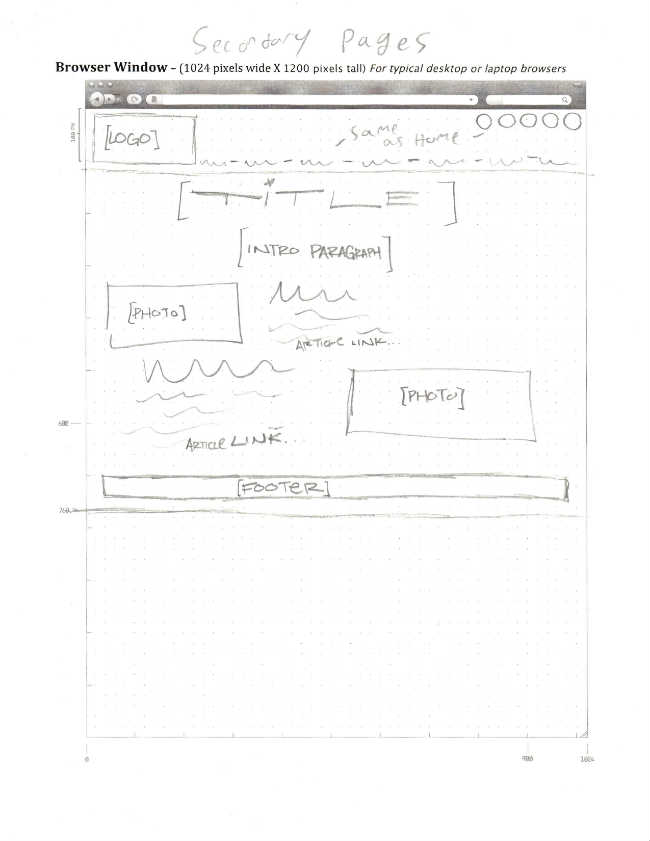 Secondary Pages
Browser Window – (1024 pixels wide X 1200 pixels tall) For typical desktop or laptop browsers
100 PX
[LOGO]
Same as Home
[TITLE]
[INTRO PARAGRAPH]
[PHOTO]
ARTICLE LINK...
[PHOTO]
ARTICLE LINK...
600
[FOOTER]
760
0
900
1024